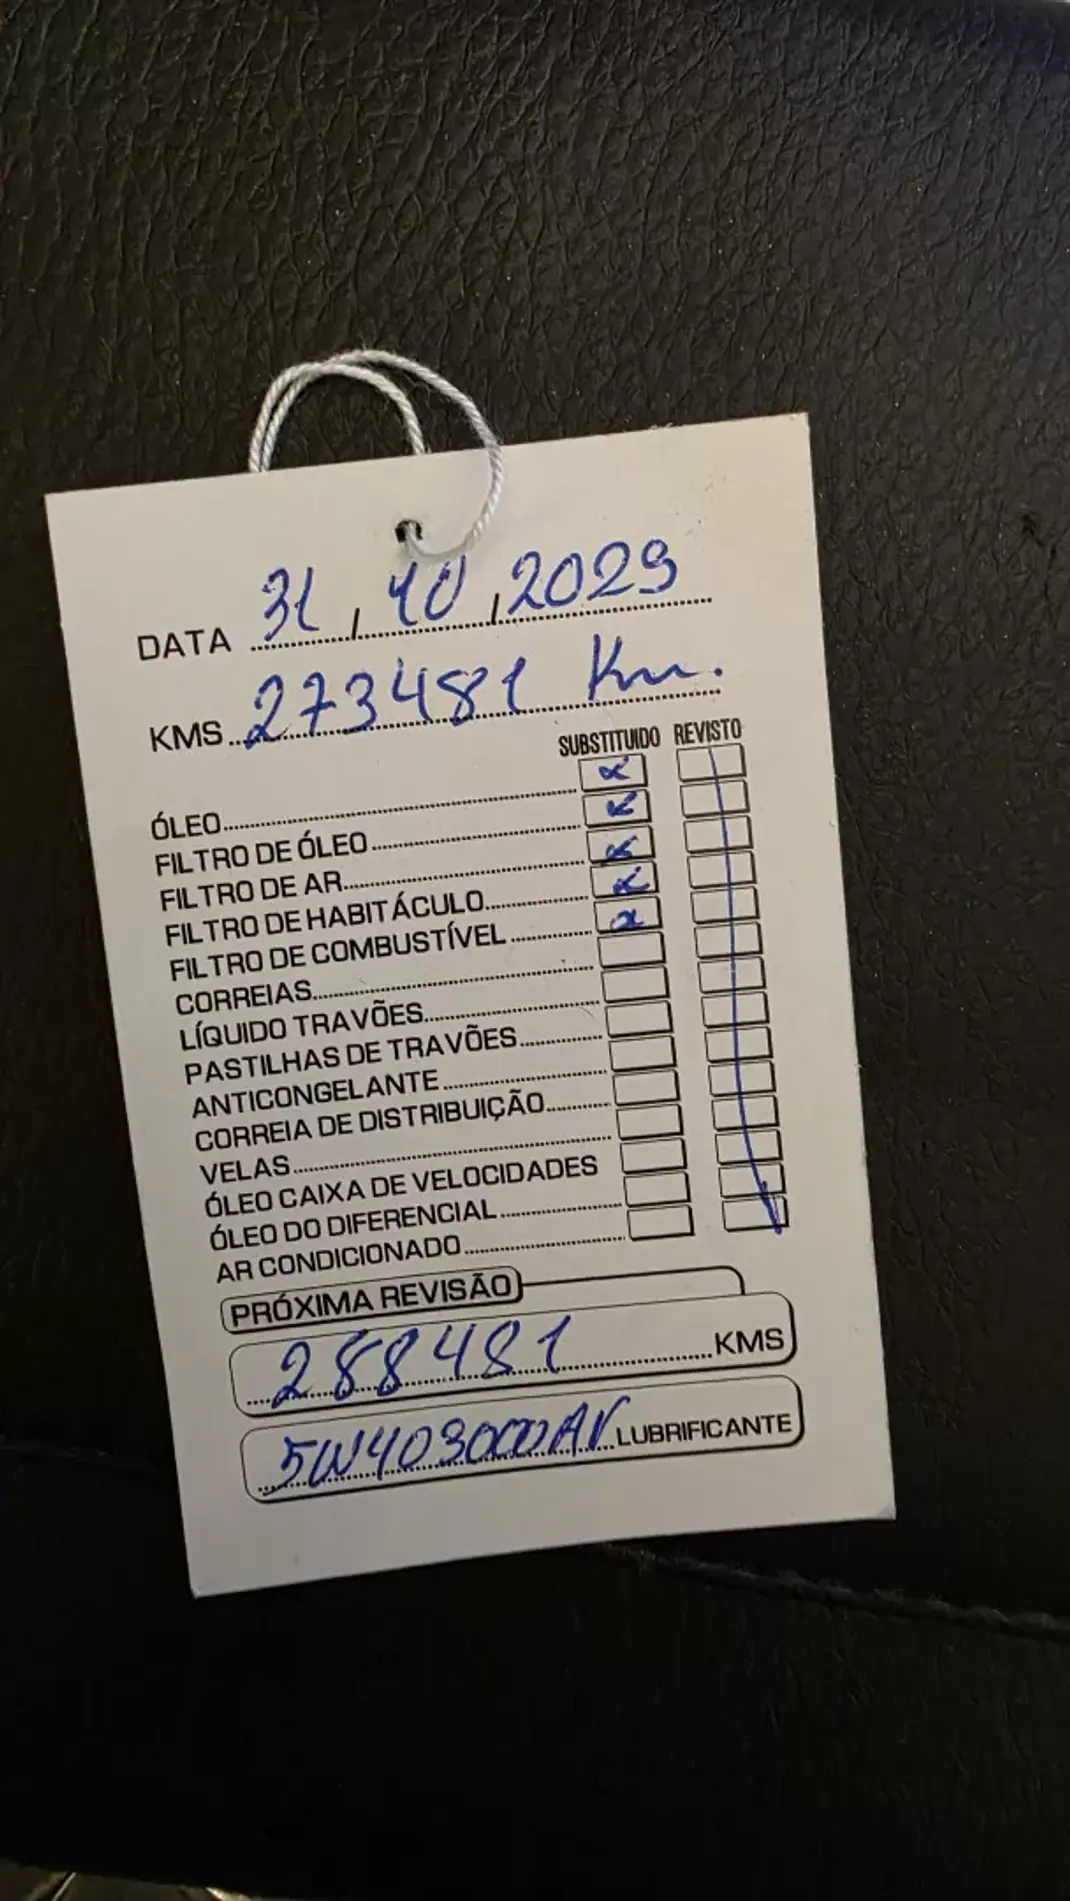 DATA 31, 10, 2023
KMS 273481 Km.
SUBSTITUIDO REVISTO
ÓLEO
FILTRO DE ÓLEO
FILTRO DE AR
FILTRO DE HABITÁCULO
FILTRO DE COMBUSTÍVEL
CORREIAS
LÍQUIDO TRAVÕES
PASTILHAS DE TRAVÕES
ANTICONGELANTE
CORREIA DE DISTRIBUIÇÃO
VELAS
ÓLEO CAIXA DE VELOCIDADES
ÓLEO DO DIFERENCIAL
AR CONDICIONADO
PRÓXIMA REVISÃO
288481 KMS
5W403000AV LUBRIFICANTE